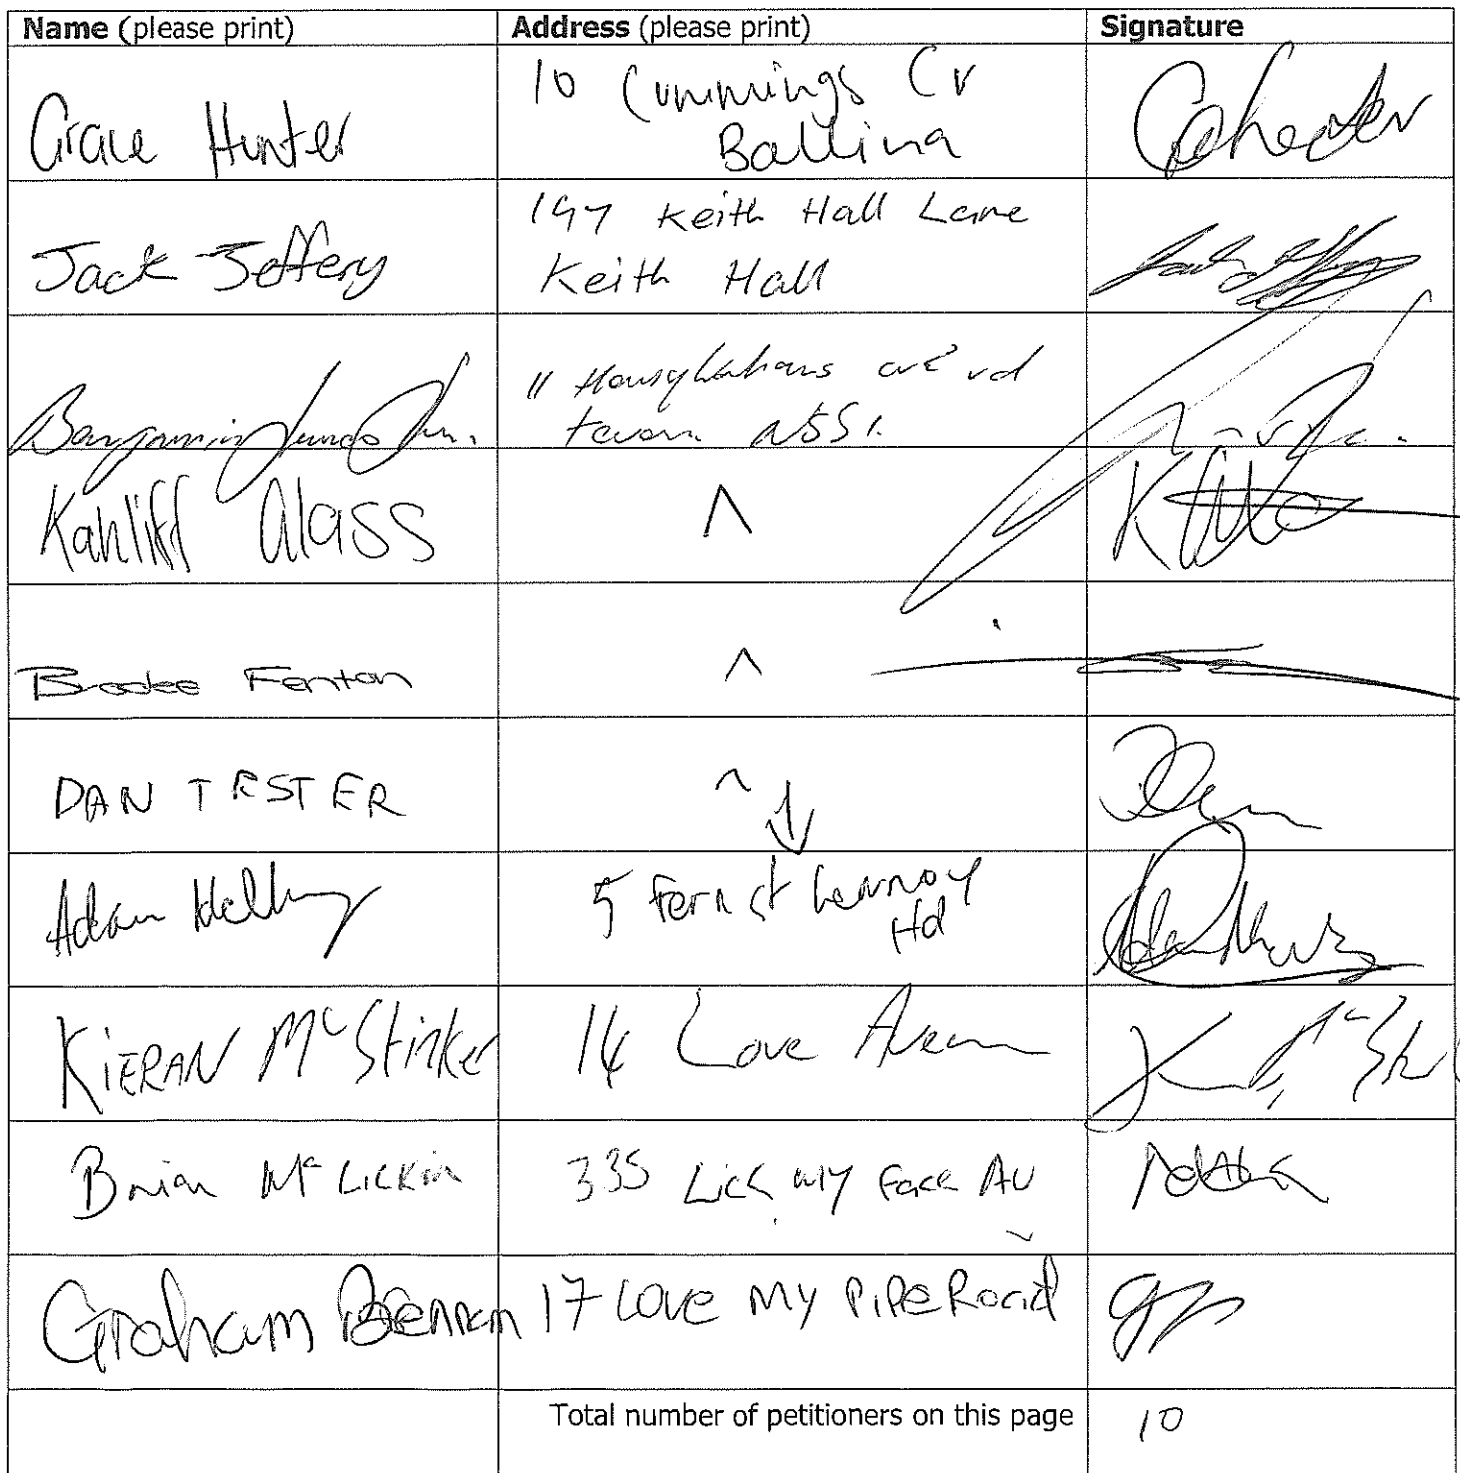 Name (please print) Address (please print) Signature
10 Cummings Cr
Grace Hunter Ballina
197 Keith Hall Lane
Jack Jeffery Keith Hall
11
Benjamin
Kahliff Glass ^ K
Brooke Fenton ^
DAN TESTER ^ ↓
Adam 5 Fern st Lennox
Hd
KIERAN McStinker 14 Love Avenue
Brian McLickin 335 Lick my Face AV
Graham Brennan 17 Love My PiPe Road
Total number of petitioners on this page 10